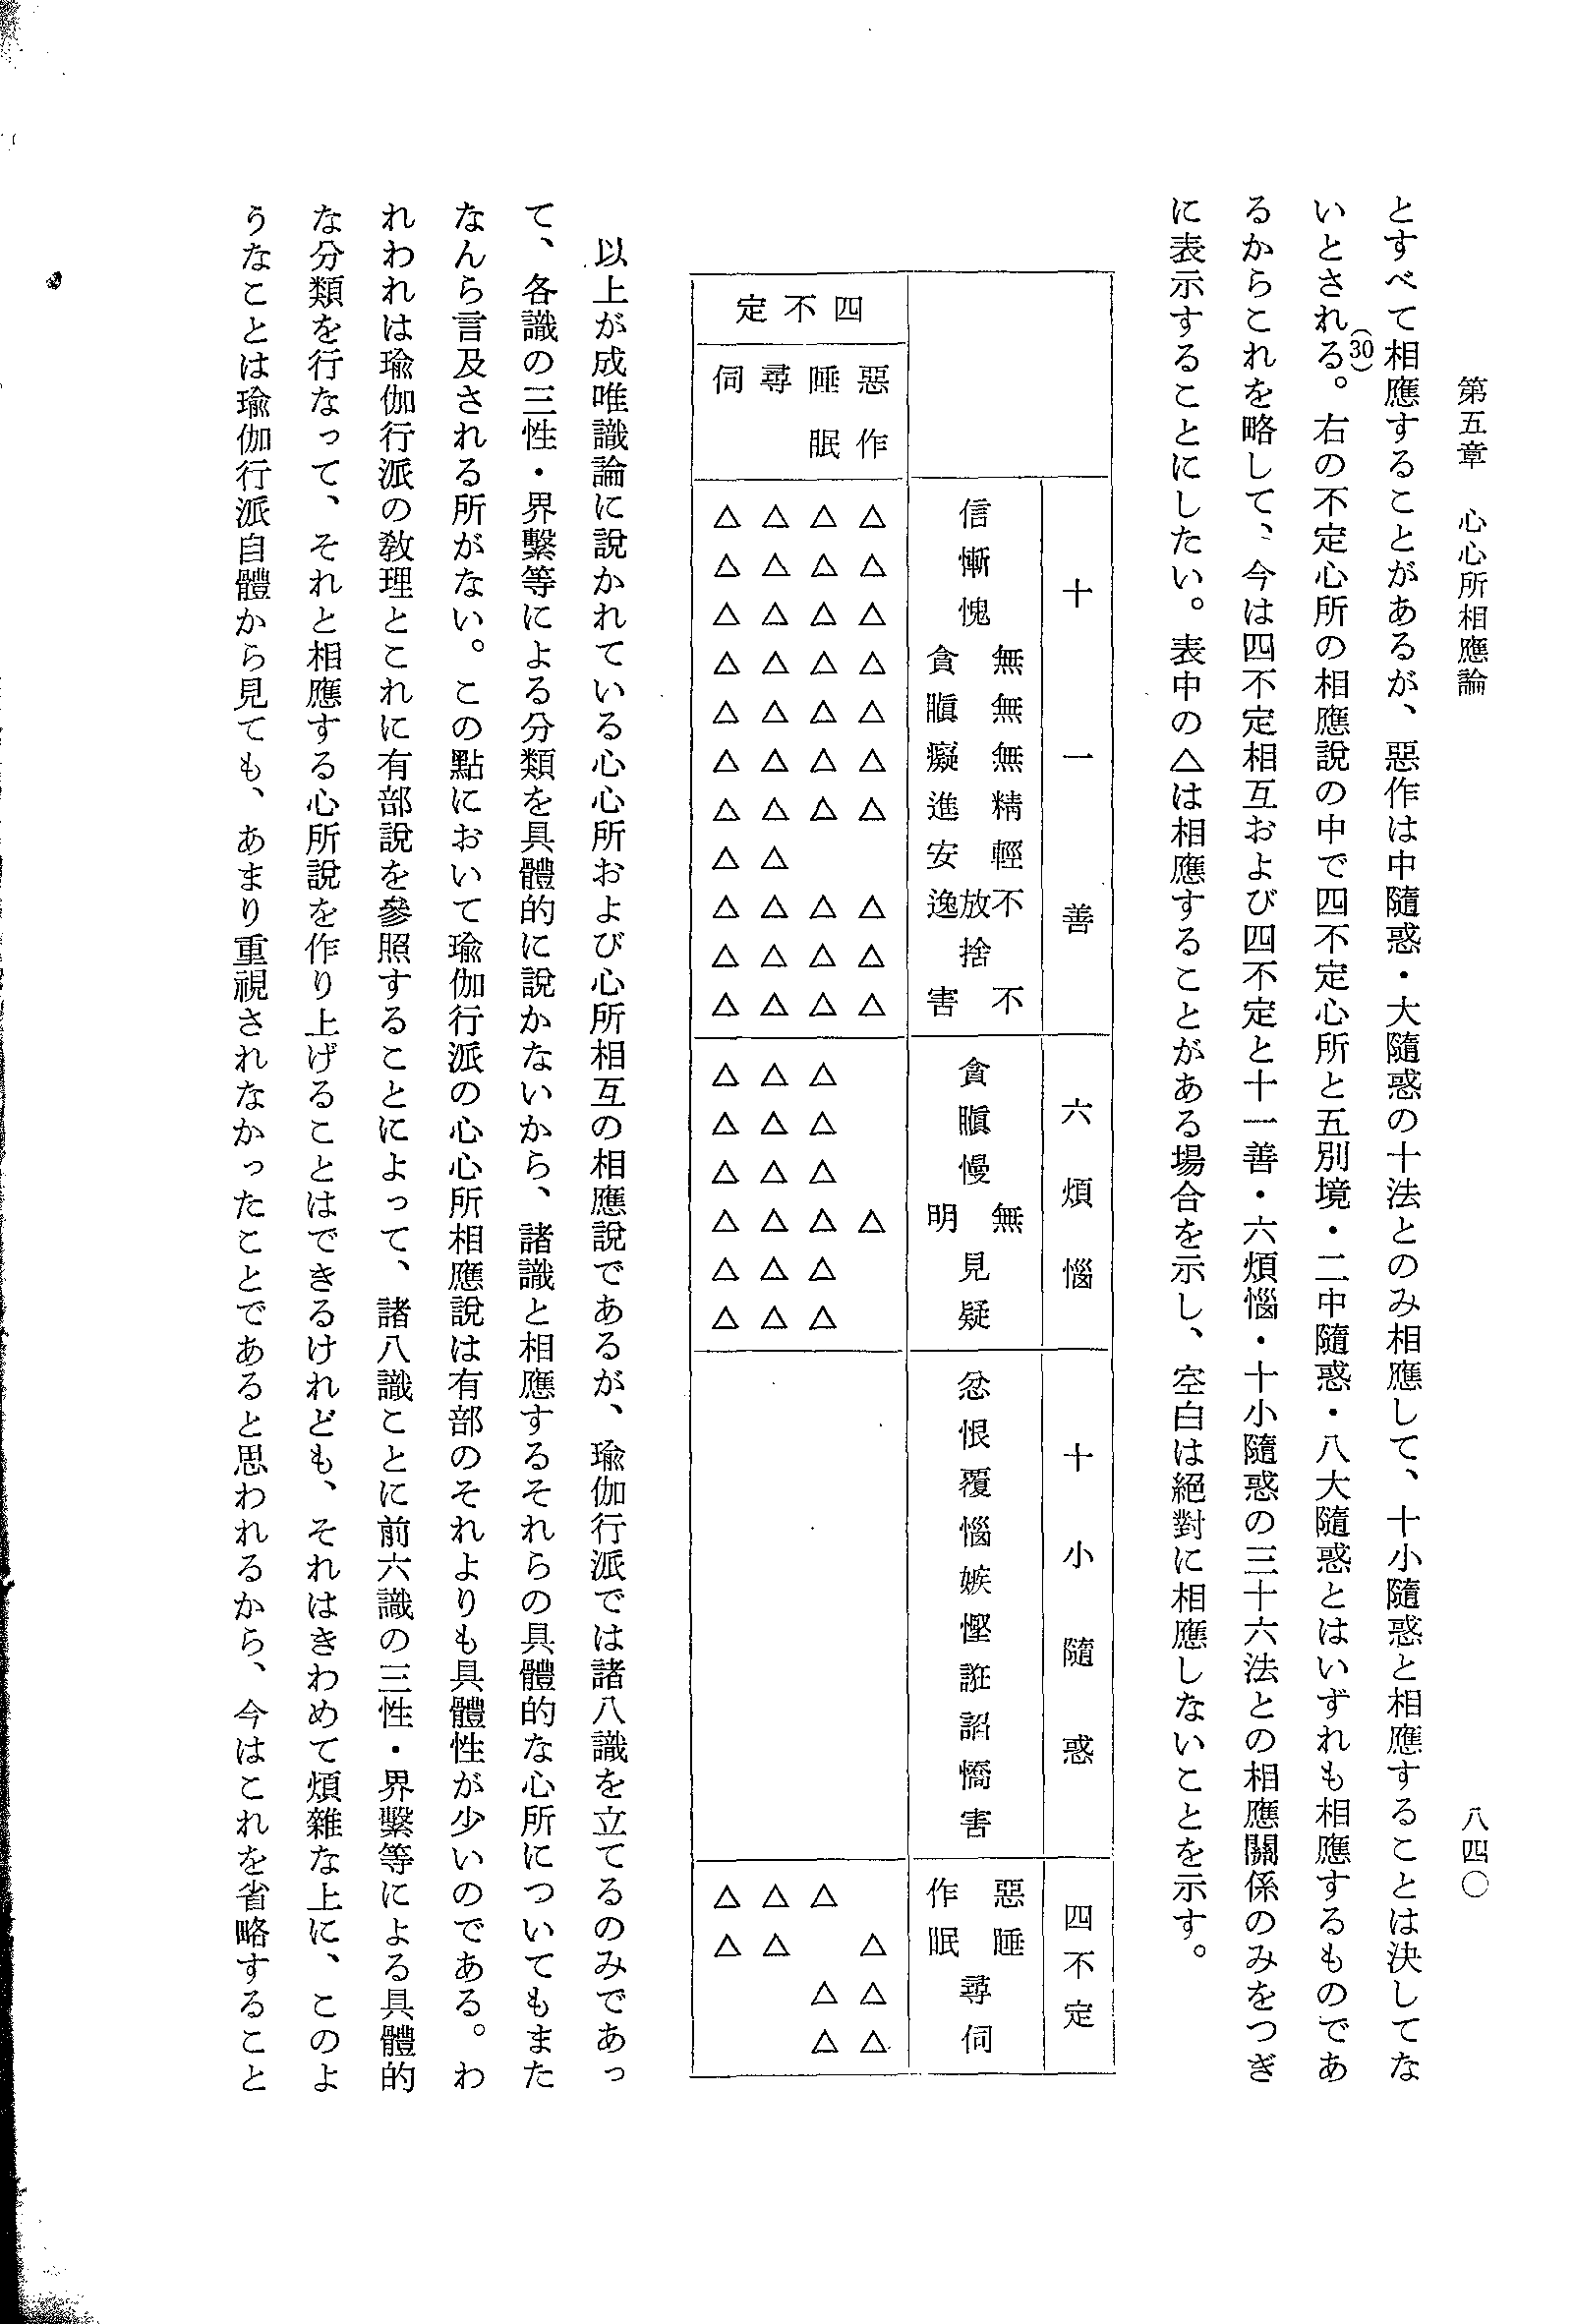 第五章　心心所相應論
八四〇
とすべて相應することがあるが、惡作は中隨惑・大隨惑の十法とのみ相應して、十小隨惑と相應することは決してな
いとされる。(30)右の不定心所の相應說の中で四不定心所と五別境・二中隨惑・八大隨惑とはいずれも相應するものであ
るからこれを略して、今は四不定相互および四不定と十一善・六煩惱・十小隨惑の三十六法との相應關係のみをつぎ
に表示することにしたい。表中の△は相應することがある場合を示し、空白は絕對に相應しないことを示す。
十一善
六煩惱
十小隨惑
四不定
信
慚
愧
無貪
無瞋
無癡
精進
輕安
不放逸
捨
不害
貪
瞋
慢
無明
見
疑
忿
恨
覆
惱
嫉
慳
誑
諂
憍
害
惡作
睡眠
尋
伺
四不定
惡作
△△△△△△△　△△△　　　△　　　　　　　　　　　　　△△△
睡眠
△△△△△△△　△△△△△△△△△　　　　　　　　　　△　△△
尋
△△△△△△△△△△△△△△△△△　　　　　　　　　　△△
伺
△△△△△△△△△△△△△△△△△　　　　　　　　　　△△
以上が成唯識論に說かれている心心所および心所相互の相應說であるが、瑜伽行派では諸八識を立てるのみであっ
て、各識の三性・界繫等による分類を具體的に說かないから、諸識と相應するそれらの具體的な心所についてもまた
なんら言及される所がない。この點において瑜伽行派の心心所相應說は有部のそれよりも具體性が少いのである。わ
れわれは瑜伽行派の敎理とこれに有部說を參照することによって、諸八識ことに前六識の三性・界繫等による具體的
な分類を行なって、それと相應する心所說を作り上げることはできるけれども、それはきわめて煩雜な上に、このよ
うなことは瑜伽行派自體から見ても、あまり重視されなかったことであると思われるから、今はこれを省略すること